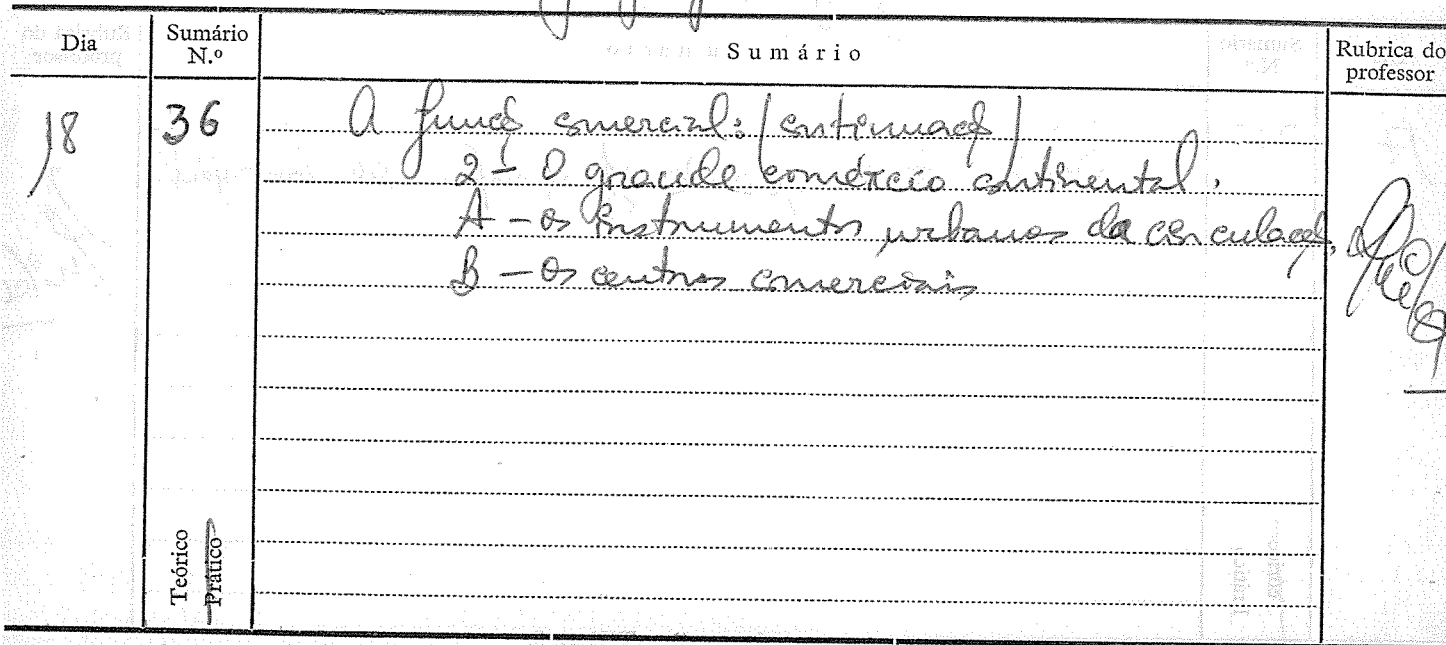 Dia
Sumário N.º
Sumário
Rubrica do professor
18
36
A função comercial: (continuação)
2 - O grande comércio continental.
A - os instrumentos urbanos da circulação,
B - Os centros comerciais
Teórico
Prático